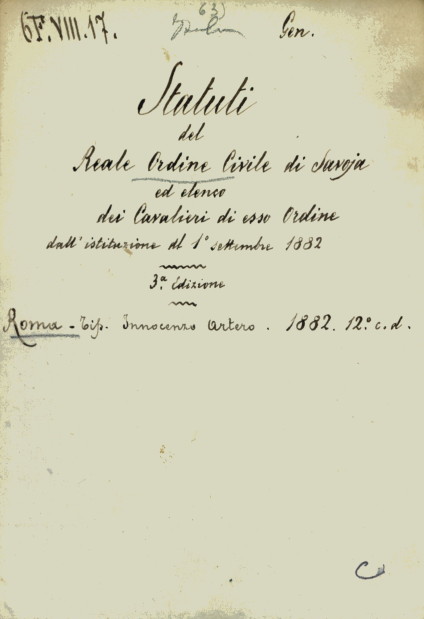 6F.VIII.17.
63)
Gen.
Statuti
del
Reale Ordine Civile di Savoja
ed elenco
dei Cavalieri di esso Ordine
dall'istituzione al 1° settembre 1882
3ª Edizione
Roma - Tip. Innocenzo Artero. 1882. 12.° c.d.